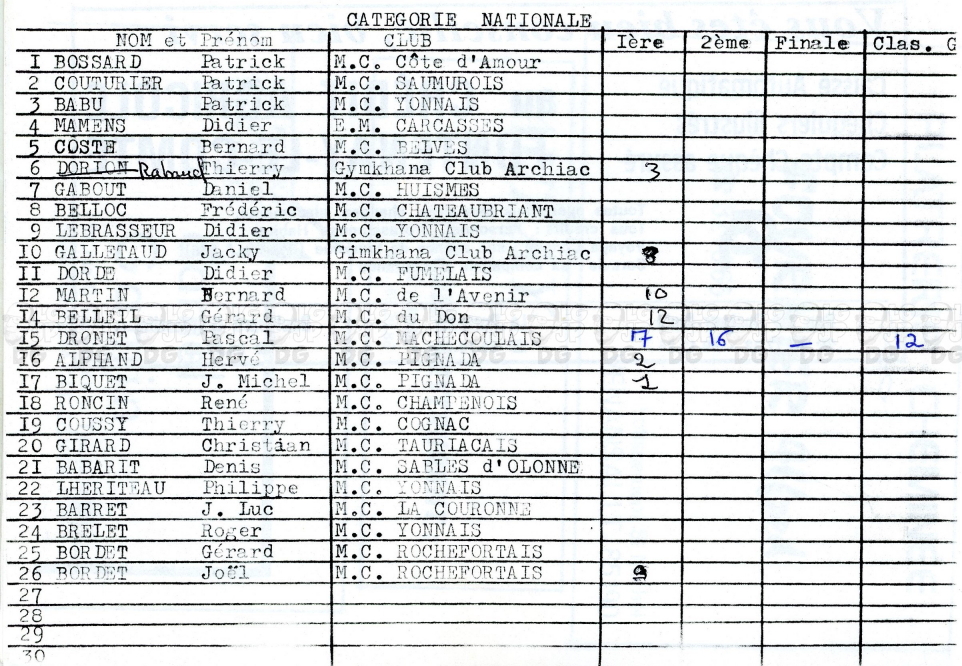 CATEGORIE NATIONALE
NOM et Prénom CLUB Ière 2ème Finale Clas. G
I BOSSARD Patrick M.C. Côte d'Amour
2 COUTURIER Patrick M.C. SAUMUROIS
3 BABU Patrick M.C. YONNAIS
4 MAMENS Didier E.M. CARCASSES
5 COSTE Bernard M.C. BELVES
6 DORION Rabaud Thierry Gymkhana Club Archiac 3
7 GABOUT Daniel M.C. HUISMES
8 BELLOC Frédéric M.C. CHATEAUBRIANT
9 LEBRASSEUR Didier M.C. YONNAIS
I0 GALLETAUD Jacky Gimkhana Club Archiac 8
II DORDE Didier M.C. FUMELAIS
I2 MARTIN Bernard M.C. de l'Avenir 10
I4 BELLEIL Gérard M.C. du Don 12
I5 DRONET Pascal M.C. MACHECOULAIS 17 16 — 12
I6 ALPHAND Hervé M.C. PIGNADA 2
I7 BIQUET J. Michel M.C. PIGNADA 1
I8 RONCIN René M.C. CHAMPENOIS
I9 COUSSY Thierry M.C. COGNAC
20 GIRARD Christian M.C. TAURIACAIS
2I BABARIT Denis M.C. SABLES d'OLONNE
22 LHERITEAU Philippe M.C. YONNAIS
23 BARRET J. Luc M.C. LA COURONNE
24 BRELET Roger M.C. YONNAIS
25 BORDET Gérard M.C. ROCHEFORTAIS
26 BORDET Joël M.C. ROCHEFORTAIS 9
27
28
29
30